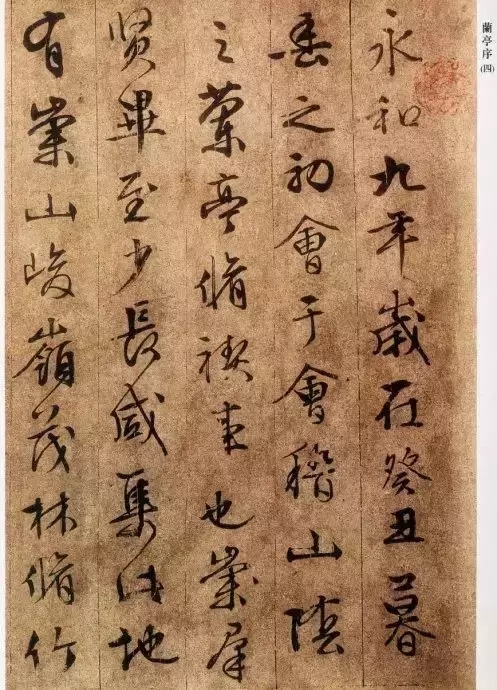 蘭亭序(四)
永和九年歲在癸丑暮
春之初會于會稽山陰
之蘭亭脩禊事也崇羣
賢畢至少長咸集此地
有崇山峻嶺茂林脩竹